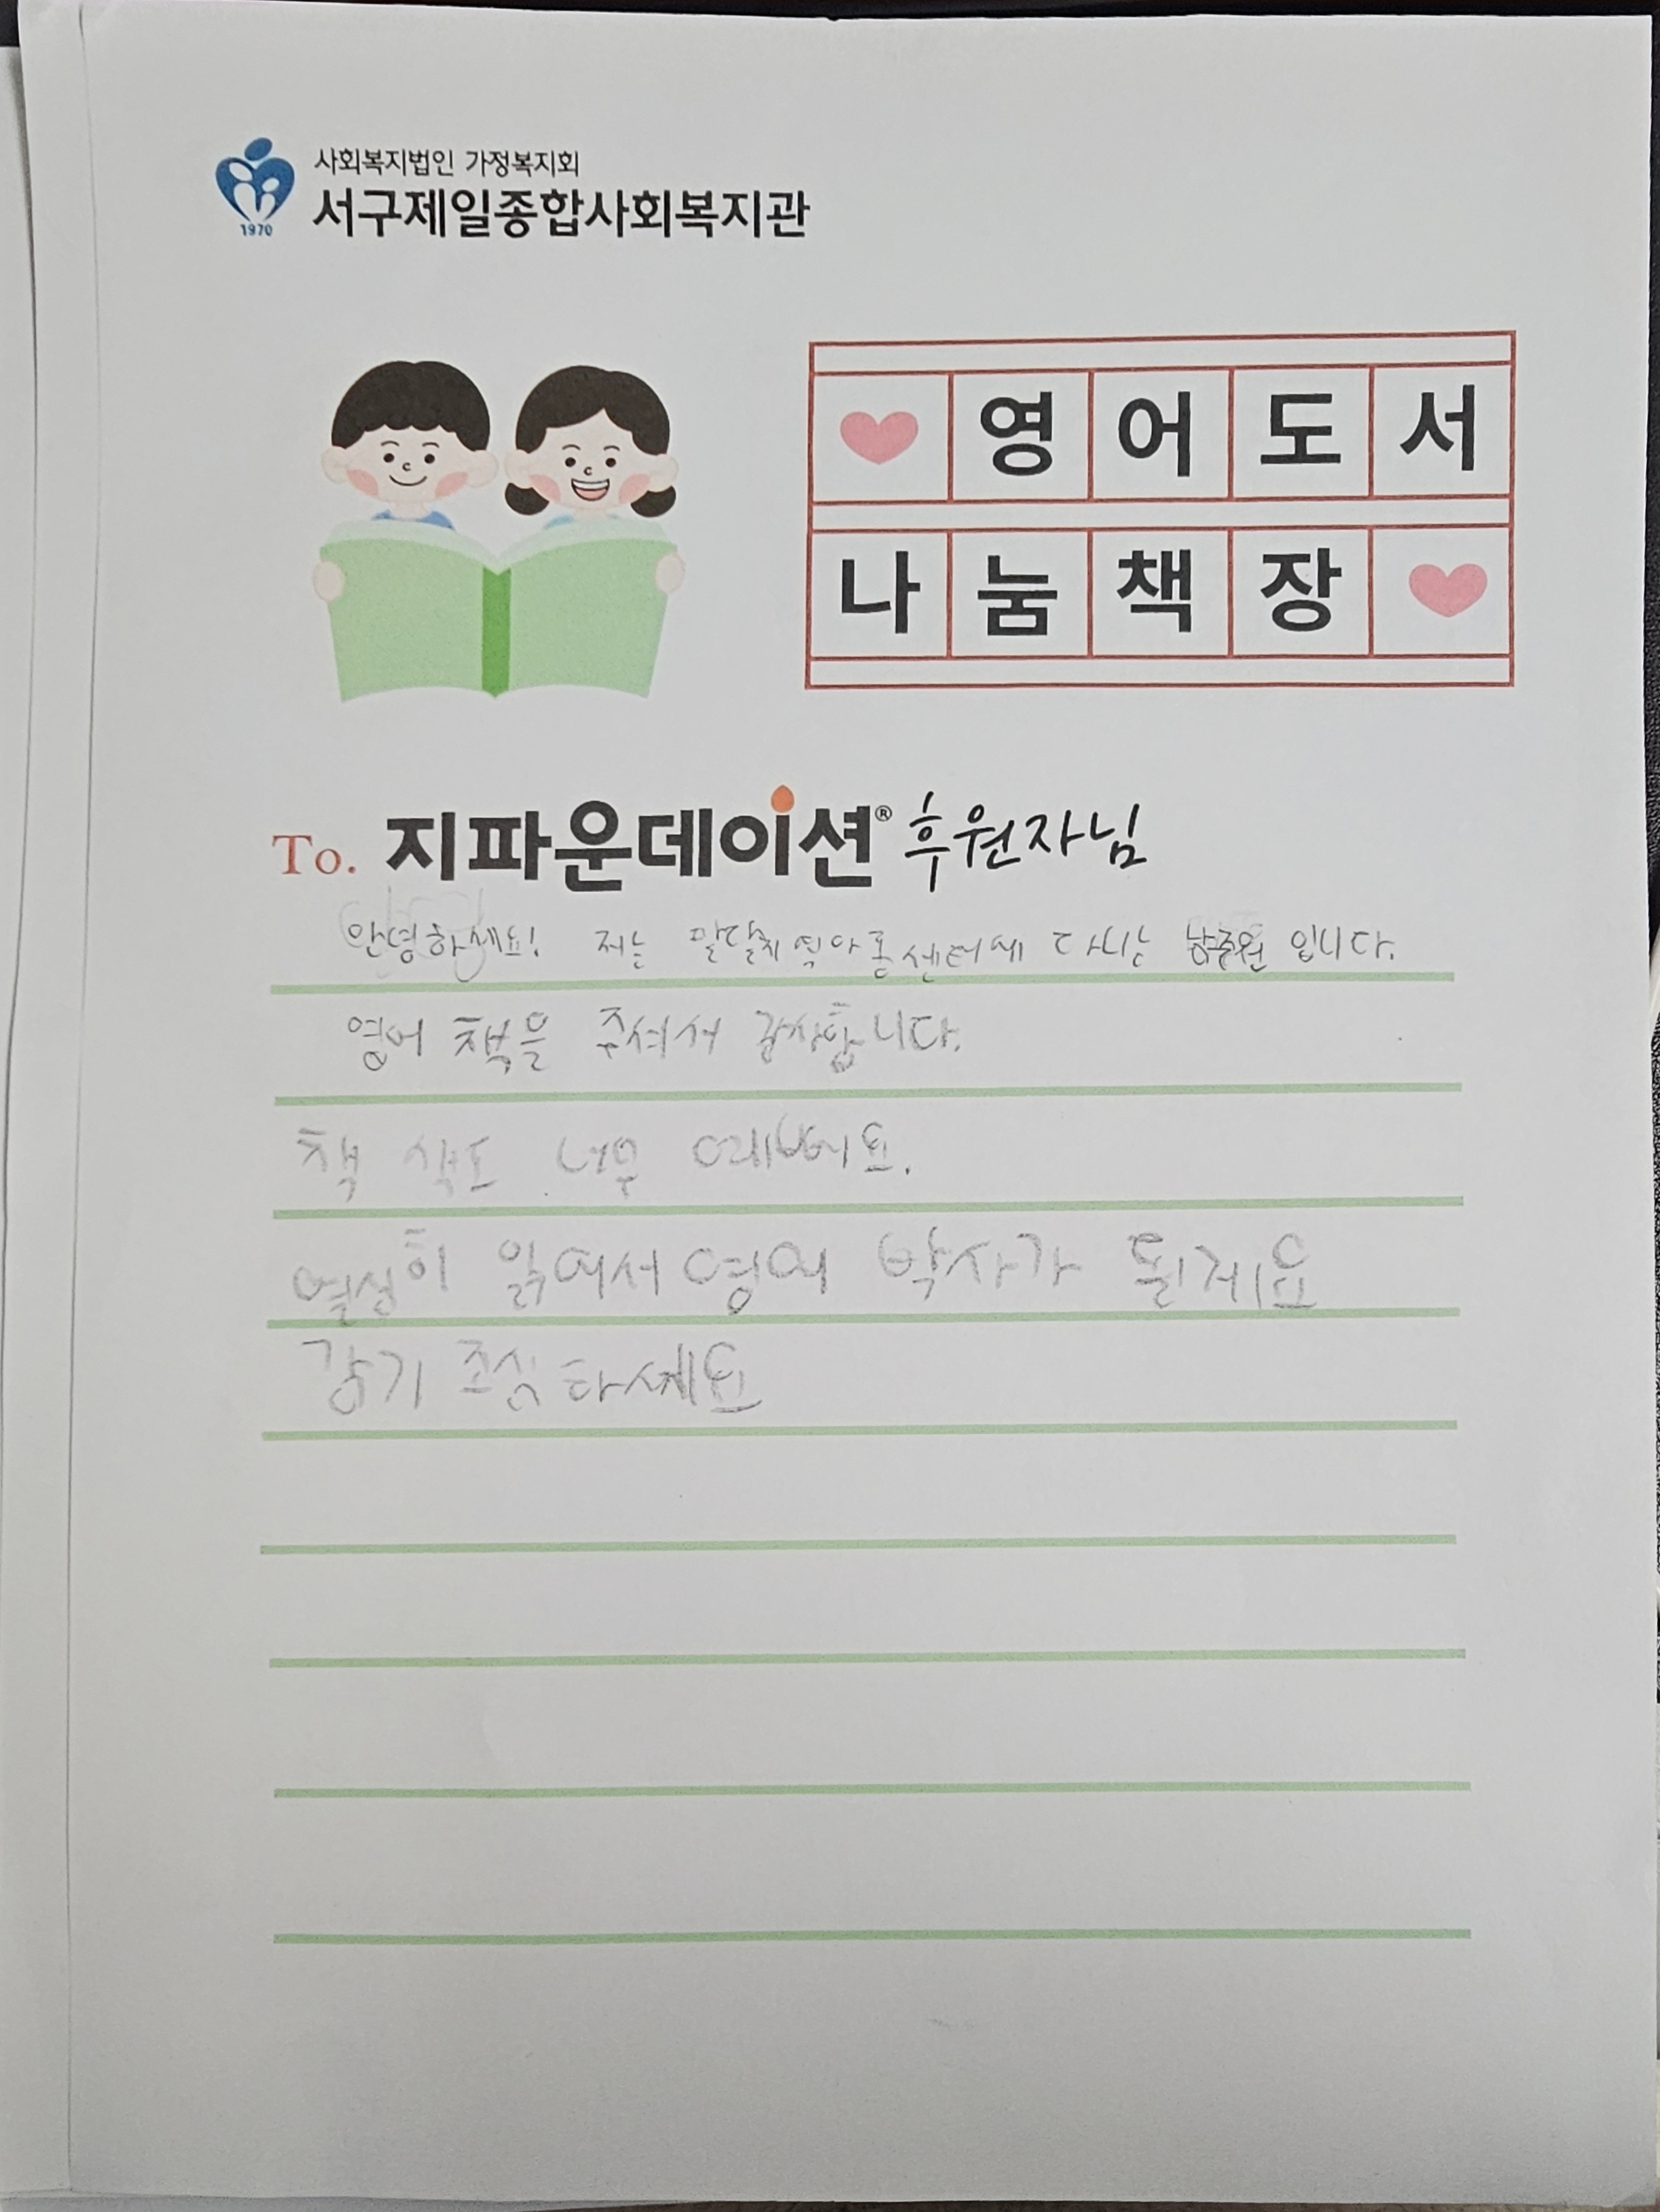 사회복지법인 가정복지회
서구제일종합사회복지관
1970
영어도서
나눔책장
To. 지파운데이션® 후원자님
안녕하세요! 저는 역아동센터에 다니는 입니다.
영어 책을 주셔서 감사합니다.
책 색도 너무 예뻐요.
열심히 읽어서 영어 박사가 될게요
감기 조심하세요